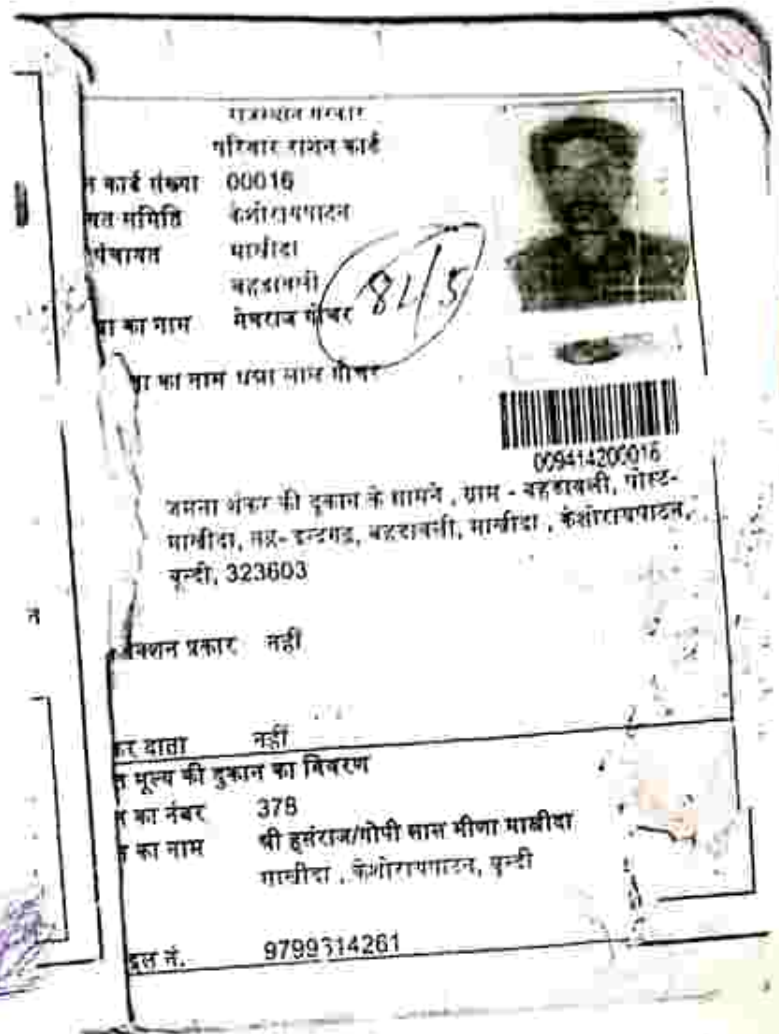 राजस्थान सरकार
परिवार राशन कार्ड
न कार्ड संख्या 00016
यत समिति केशोरायपाटन
पंचायत माखीदा
बहडावली
या का नाम मेघराज गोचर
81/5
का नाम धन्ना लाल गोचर
009414200016
जमना शंकर की दुकान के सामने , ग्राम - बहडावली, पोस्ट-
माखीदा, तह- इन्द्रगढ, बहडावली, माखीदा , केशोरायपाटन,
बून्दी, 323603
क्शन प्रकार नहीं
कर दाता नहीं
त मूल्य की दुकान का विवरण
न का नंबर 378
न का नाम श्री हसंराज/गोपी लाल मीणा माखीदा
माखीदा , केशोरायपाटन, बून्दी
इल नं. 9799314261